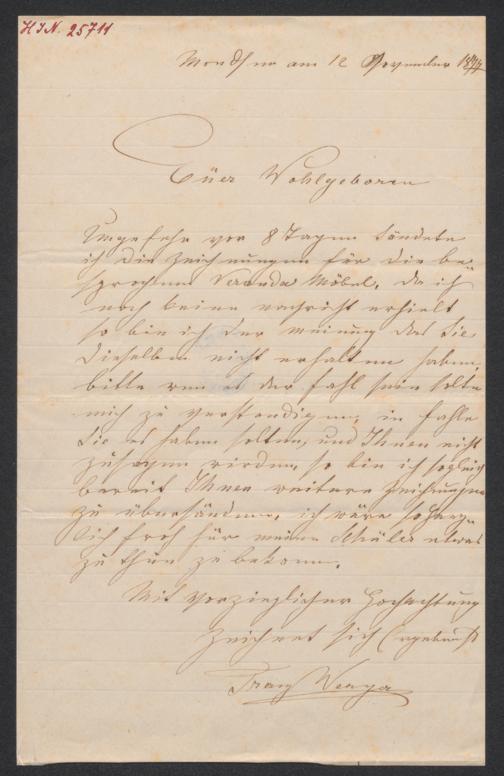 H.I.N. 25711
Mondsee am 12 November 1877
Euer Wohlgeboren
Ungefehr vor 8 Tagen sändete
ich die Zeichnungen für die be-
sprochene Veranda Möbel, da ich
noch keine nachricht erhielt
so bin ich der meinung das Sie
dieselben nicht erhalten haben,
bitte wen es der fahl sein solte
mich zu verstendigen, in fahle
Sie es haben solten, und Ihnen nicht
zusagen wirden, so bin ich sogleich
bereit Ihnen weitere Zeichnungen
zu übersänden, ich wäre so herz-
lich froh für meine Schüler etwas
zu thun zu bekomen.
Mit vorzieglicher Hochachtung
zeichnet sich Ergebenst
Franz